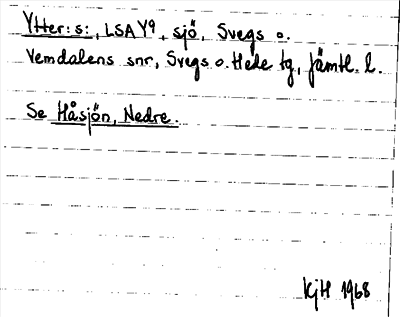 Ytter:s:, LSA Y9, sjö, Svegs o.
Vemdalens snr, Svegs o. Hede tg, Jämtl. l.
Se Håsjön, Nedre.
KjH 1968